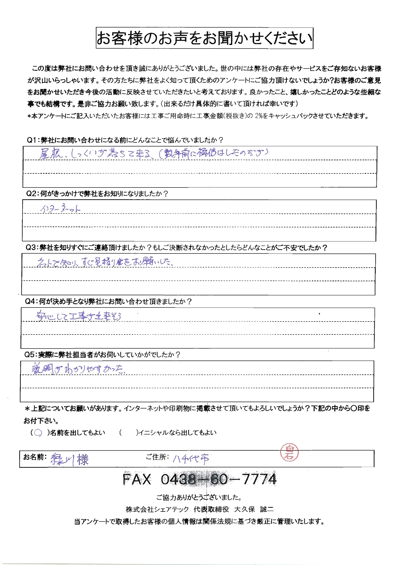 お客様のお声をお聞かせください
この度は弊社にお問い合わせを頂き誠にありがとうございました。世の中には弊社の存在やサービスをご存知ないお客様
が沢山いらっしゃいます。その方たちに弊社をよく知って頂くためのアンケートにご協力頂けないでしょうか?お客様のご意見
をお聞かせいただき今後の活動に反映させていただきたいと考えております。良かったこと、嬉しかったことどのような些細な
事でも結構です。是非ご協力お願い致します。(出来るだけ具体的に書いて頂ければ幸いです)
*本アンケートにご記入いただいたお客様には工事ご用命時に工事金額(税抜き)の2%をキャッシュバックさせていただきます。
Q1:弊社にお問い合わせになる前にどんなことで悩んでいましたか?
屋根、しっくいが落ちて来る、(数年前に補修はしたのだが)
Q2:何がきっかけで弊社をお知りになりましたか?
インターネット
Q3:弊社を知りすぐにご連絡頂けましたか?もしご決断されなかったとしたらどんなことがご不安でしたか?
ネットで知り、すぐ見積り をお願いした、
Q4:何が決め手となり弊社にお問い合わせ頂きましたか?
安心して工事が出来そう
Q5:実際に弊社担当者がお伺いしていかがでしたか?
説明がわかりやすかった
*上記についてお願いがあります。インターネットや印刷物に掲載させて頂いてもよろしいでしょうか?下記の中から〇印を
お付下さい。
(〇)名前を出してもよい ( )イニシャルなら出してもよい
お名前: 様 ご住所: 八千代市
FAX 0438-60-7774
ご協力ありがとうございました。
株式会社シェアテック 代表取締役 大久保 誠二
当アンケートで取得したお客様の個人情報は関係法規に基づき厳正に管理いたします。